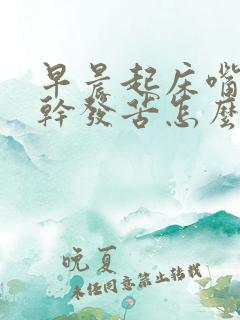 早晨起床嘴
幹發苦怎麼
晚夏
未经同意禁止转载